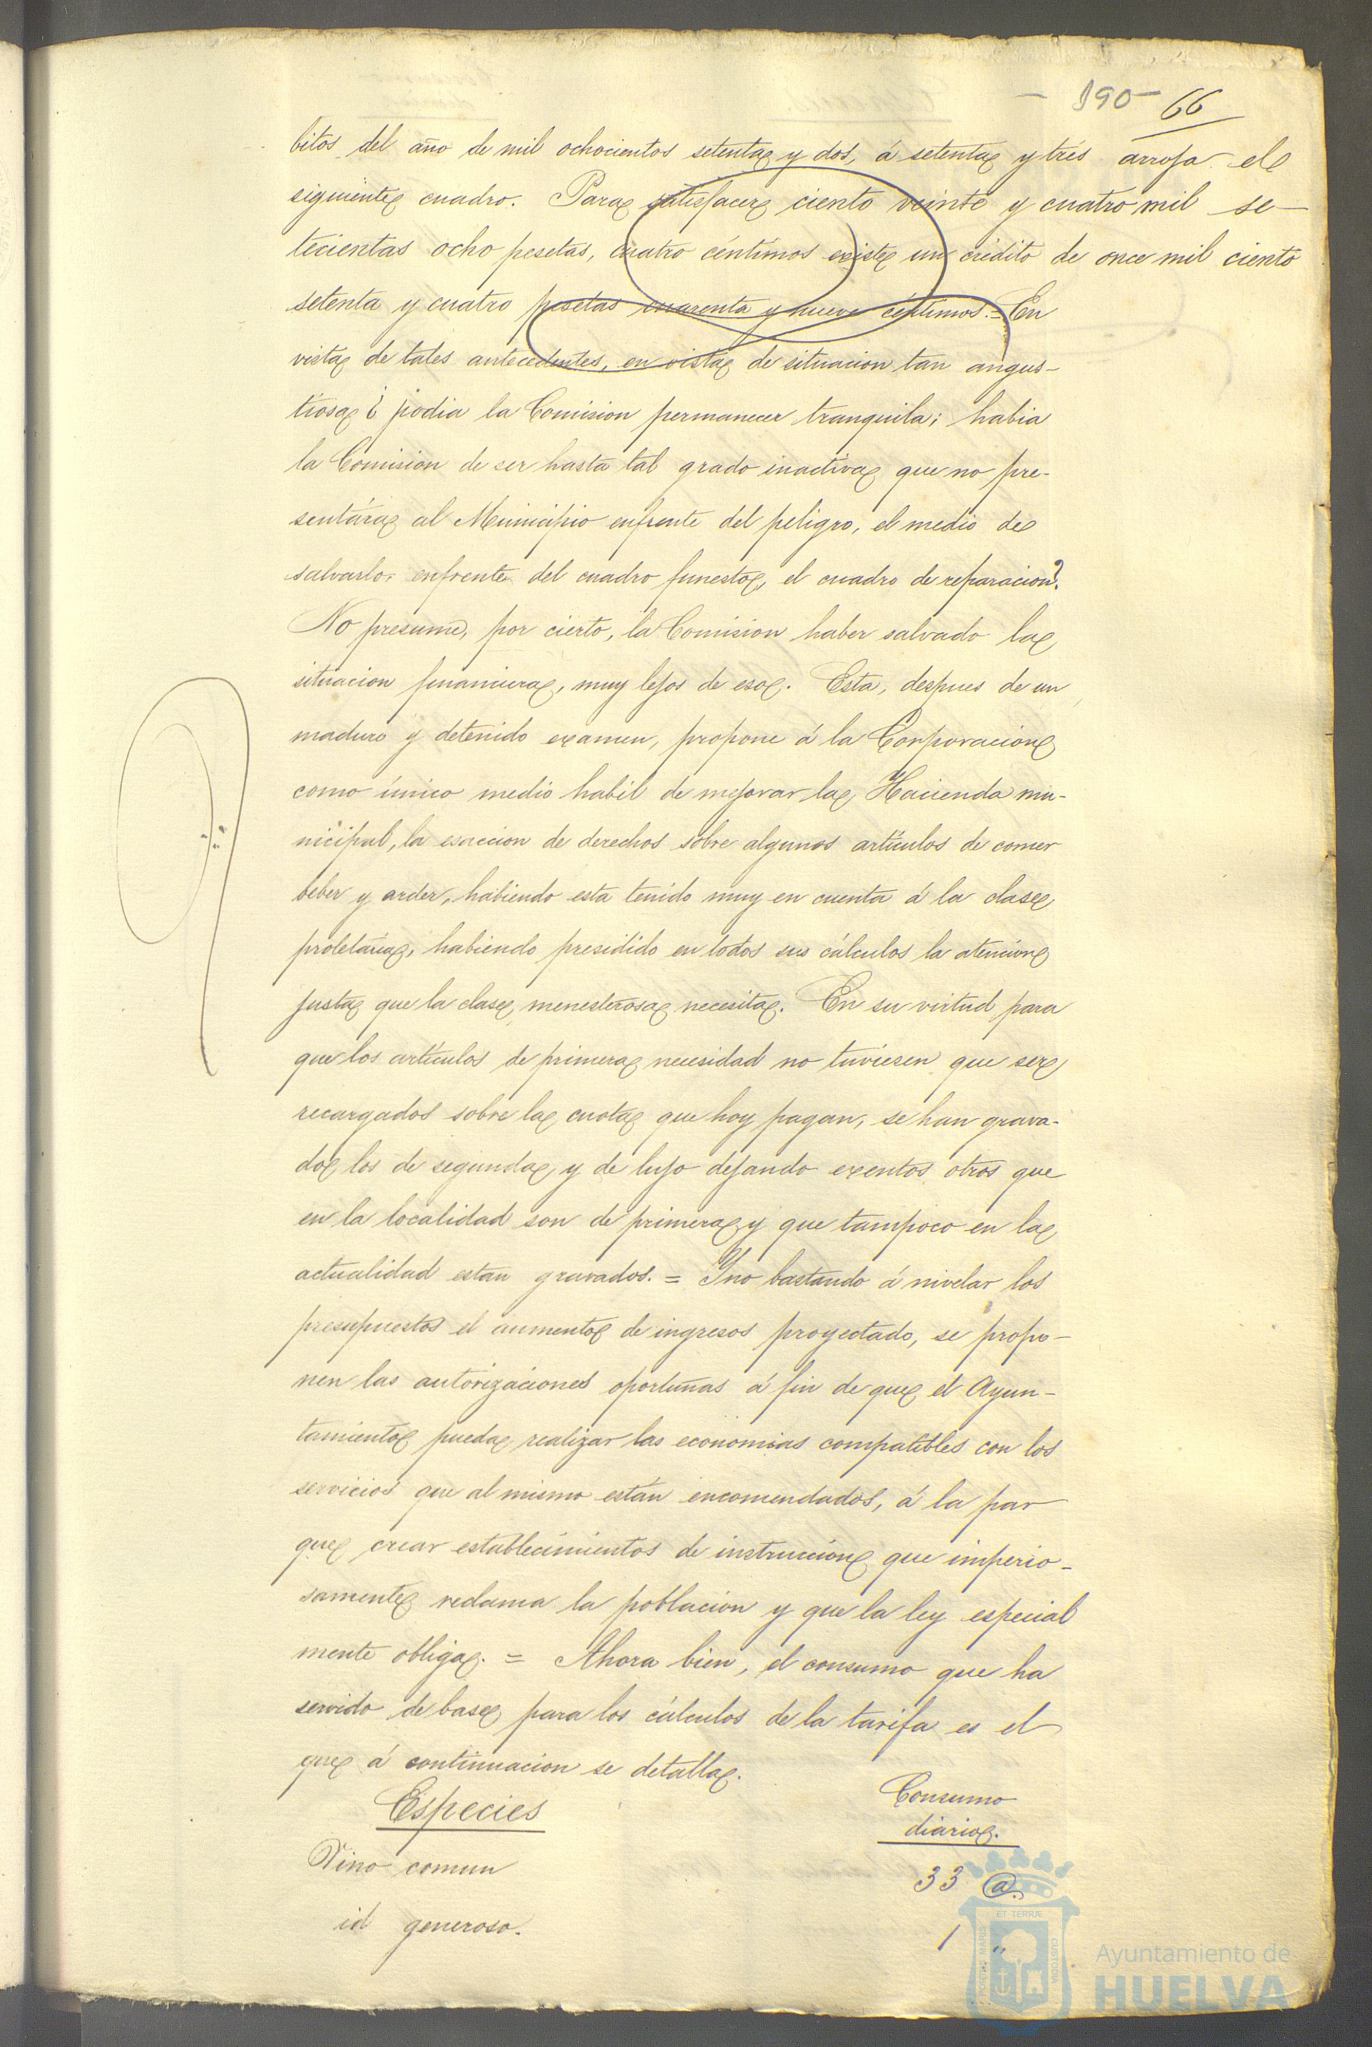 - 190 - 66
bitos del año de mil ochocientos setenta y dos, á setenta y tres arroja el
siguiente cuadro. Para satisfacer ciento veinte y cuatro mil se-
tecientas ocho pesetas, cuatro céntimos existe un crédito de once mil ciento
setenta y cuatro pesetas cuarenta y nueve céntimos. = En
vista de tales antecedentes, en vista de situacion tan angus-
tiosa ¿ podia la Comision permanecer tranquila; habia
la Comision de ser hasta tal grado inactiva que no pre-
sentára al Municipio enfrente del peligro, el medio de
salvarlo enfrente del cuadro funesto, el cuadro de reparacion?
No presume, por cierto, la Comision haber salvado la
situacion financiera, muy lejos de eso. Esta, despues de un
maduro y detenido examen, propone á la Corporacion
como único medio habil de mejorar la Hacienda mu-
nicipal, la esaccion de derechos sobre algunos artículos de comer
beber y arder, habiendo esta tenido muy en cuenta á la clase
proletaria, habiendo presidido en todos sus cálculos la atencion
justa que la clase menesterosa necesita. En su virtud para
que los artículos de primera necesidad no tuviesen que ser
recargados sobre la cuota que hoy pagan, se han grava-
do los de segunda y de lujo dejando exentos otros que
en la localidad son de primera y que tampoco en la
actualidad estan gravados. = Y no bastando á nivelar los
presupuestos el aumento de ingresos proyectado, se propo-
nen las autorizaciones oportunas á fin de que el Ayun-
tamiento pueda realizar las economias compatibles con los
servicios que al mismo están encomendados, á la par
que crear establecimientos de instruccion que imperio-
samente reclama la poblacion y que la ley especial
mente obliga. = Ahora bien, el consumo que ha
servido de base para los cálculos de la tarifa es el
que á continuacion se detalla.
Especies Consumo
diario.
Vino comun 33 @.
id generoso. 1 "
PORTUS MARIS ET TERRÆ CUSTODIA
Ayuntamiento de
HUELVA